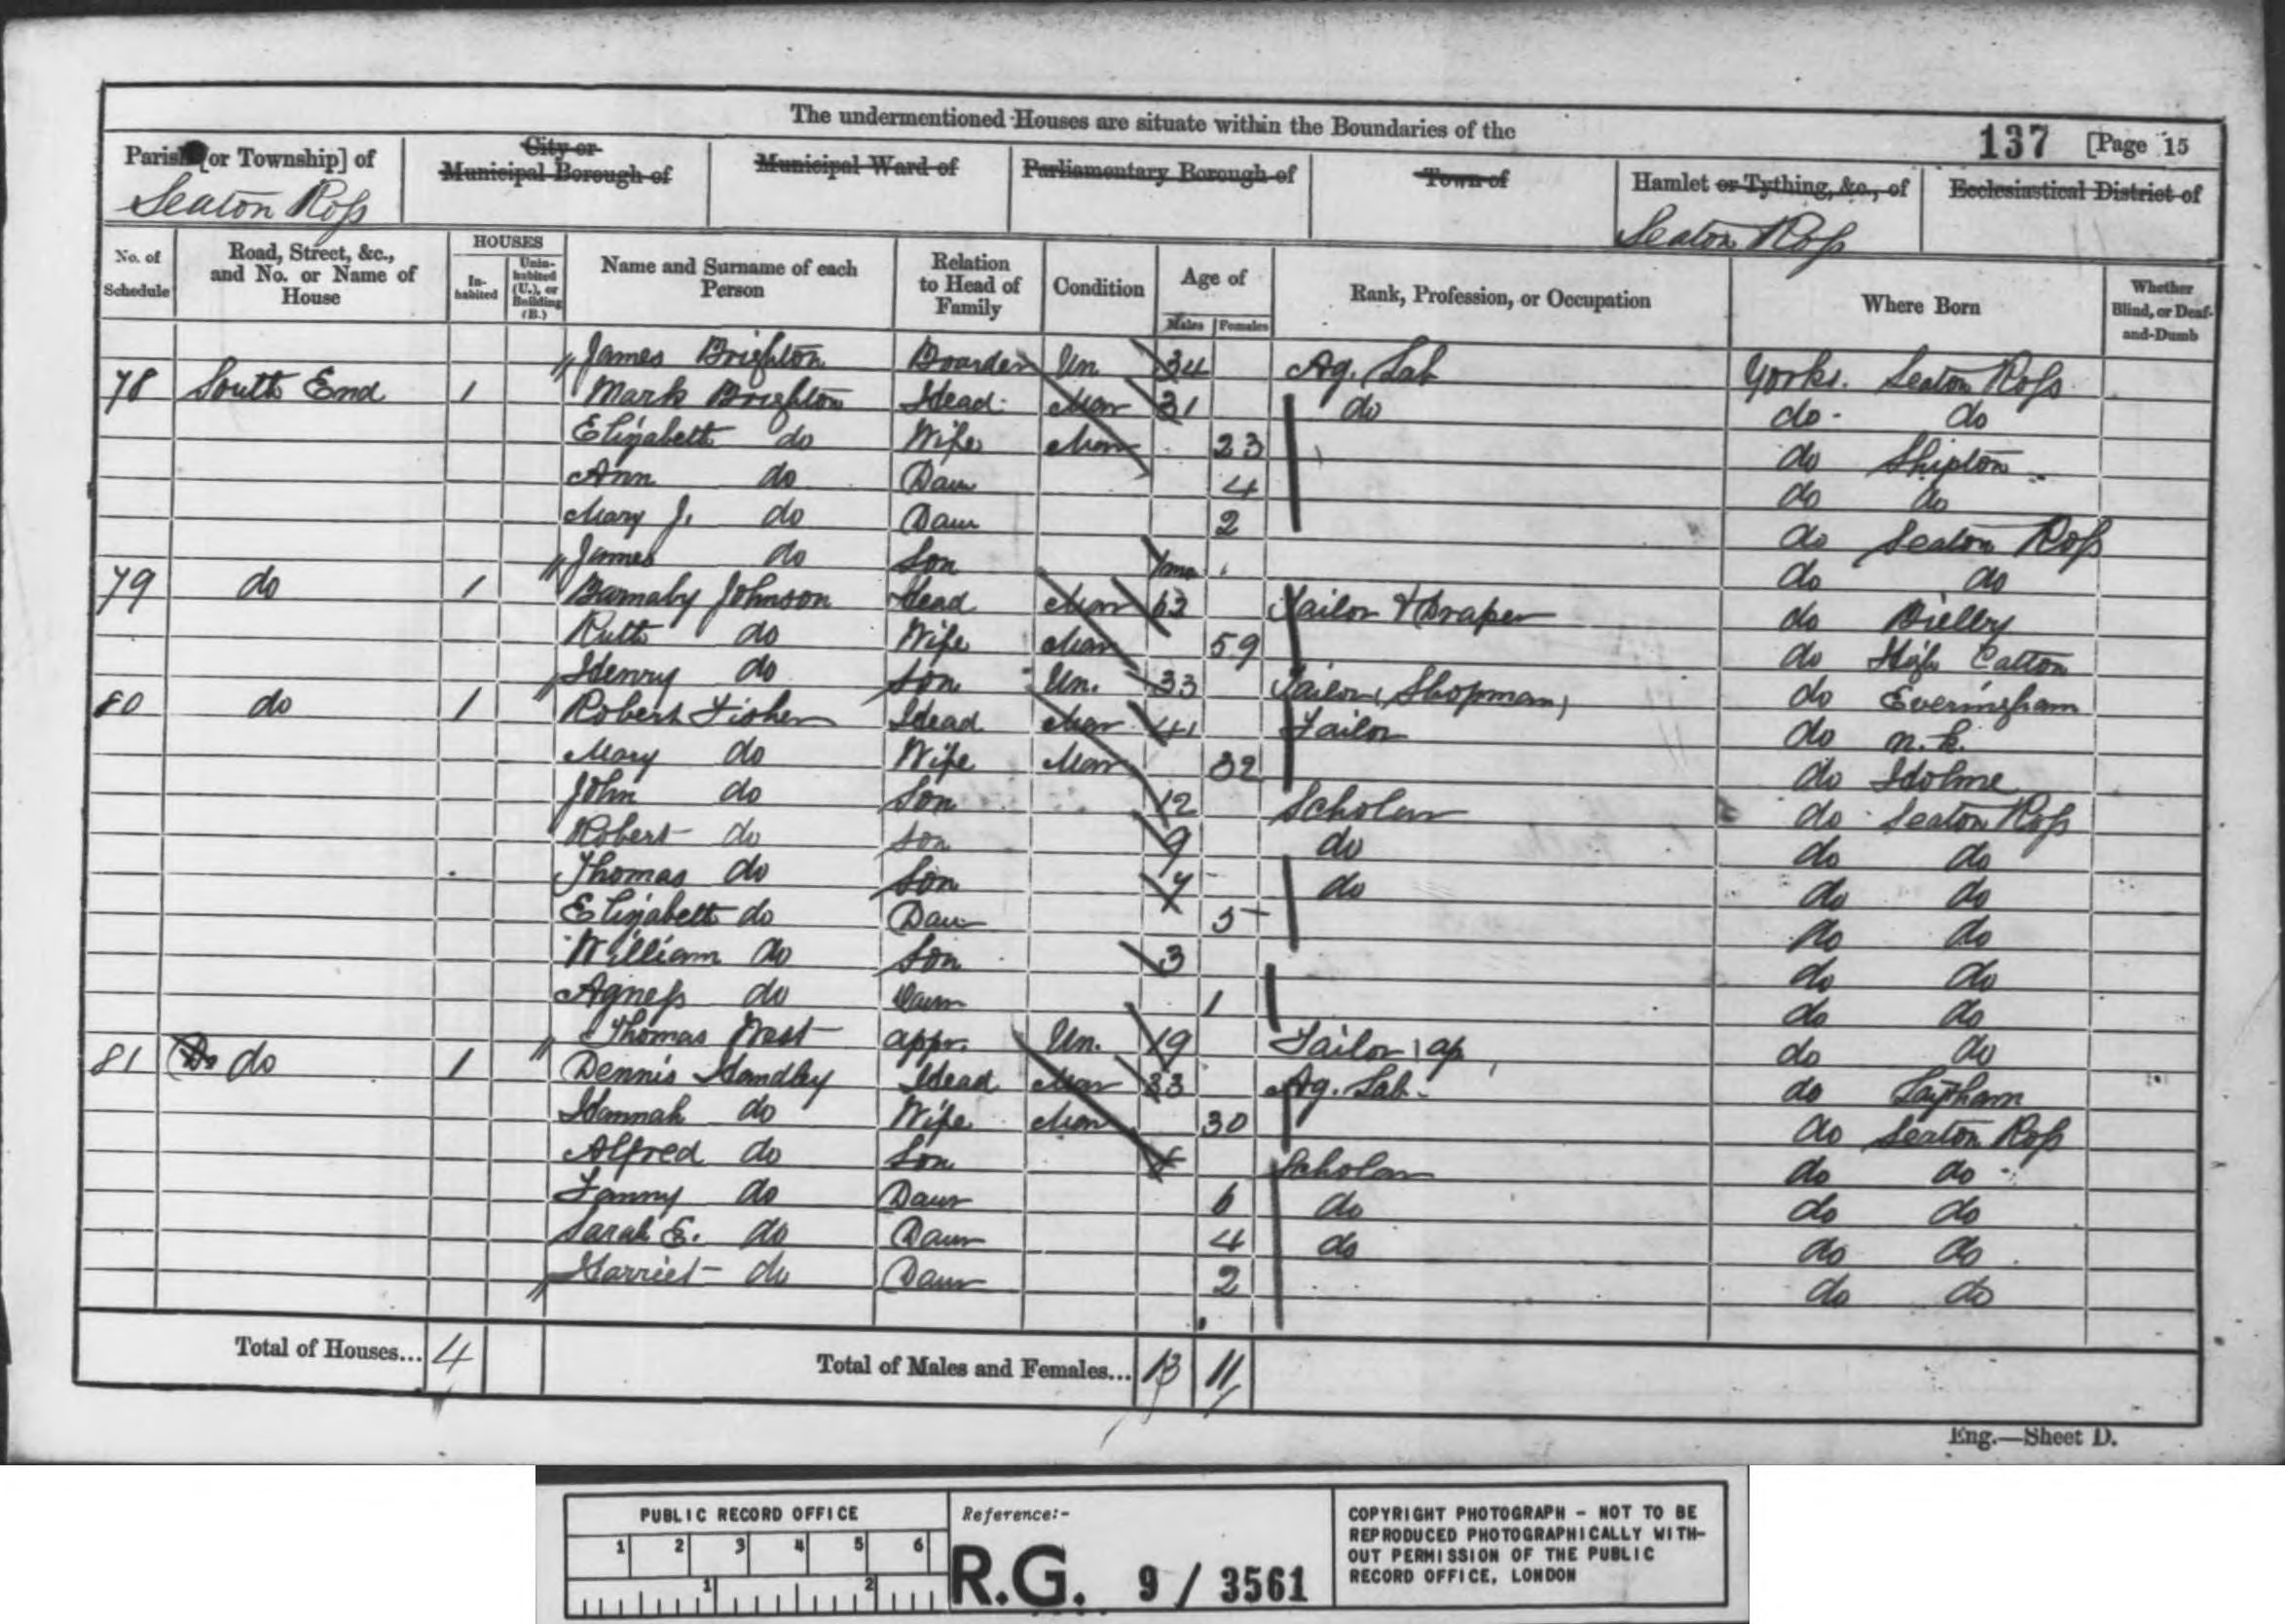 The undermentioned Houses are situate within the Boundaries of the
137 [Page 15
Parish [or Township] of
City or Municipal Borough of
Municipal Ward of
Parliamentary Borough of
Town of
Hamlet or Tything, &c., of
Ecclesiastical District of
Seaton Ross
Seaton Ross
No. of Schedule
Road, Street, &c., and No. or Name of House
HOUSES
In-habited
Unin-habited (U.), or Building (B.)
Name and Surname of each Person
Relation to Head of Family
Condition
Age of
Males
Females
Rank, Profession, or Occupation
Where Born
Whether Blind, or Deaf-and-Dumb
James Brighton Boarder Un 34 Ag. Lab Yorks. Seaton Ross
78 South End 1 Mark Brighton Head Mar 31 do do do
Elizabeth do Wife Mar 23 do Shipton
Ann do Daur 4 do do
Mary J. do Daur 2 do Seaton Ross
James do Son mo do do
79 do 1 Barnaby Johnson Head Mar 62 Tailor & Draper do Bielby
Ruth do Wife Mar 59 do High Catton
Henry do Son Un. 33 Tailor (Shopman) do Everingham
80 do 1 Robert Fisher Head Mar 41 Tailor do n.k.
Mary do Wife Mar 32 do Holme
John do Son 12 Scholar do Seaton Ross
Robert do Son 9 do do do
Thomas do Son 7 do do do
Elizabeth do Daur 5 do do
William do Son 3 do do
Agness do Daur 1 do do
Thomas West appr. Un. 19 Tailor ap do do
81 Do do 1 Dennis Handley Head Mar 33 Ag. Lab. do Laytham
Hannah do Wife Mar 30 do Seaton Ross
Alfred do Son Scholar do do
Fanny do Daur 6 do do do
Sarah E. do Daur 4 do do do
Harriet do Daur 2 do do
Total of Houses... 4
Total of Males and Females... 13 11
Eng.—Sheet D.
PUBLIC RECORD OFFICE
1 2 3 4 5 6
1 2
Reference:-
R.G. 9 / 3561
COPYRIGHT PHOTOGRAPH - NOT TO BE
REPRODUCED PHOTOGRAPHICALLY WITH-
OUT PERMISSION OF THE PUBLIC
RECORD OFFICE, LONDON